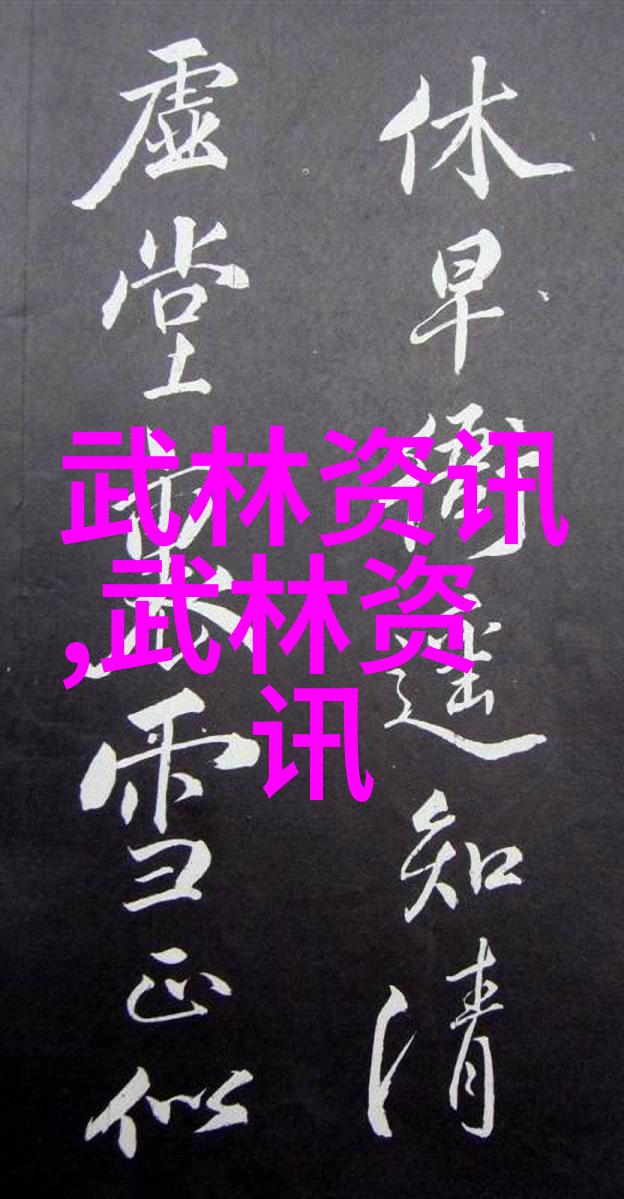 休早衙遥知清
虚堂裏雪正似
武林资讯
,武林资
讯